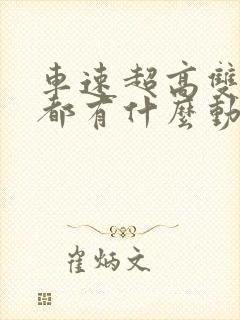 車速超高雙
都有什麼動
崔炳文